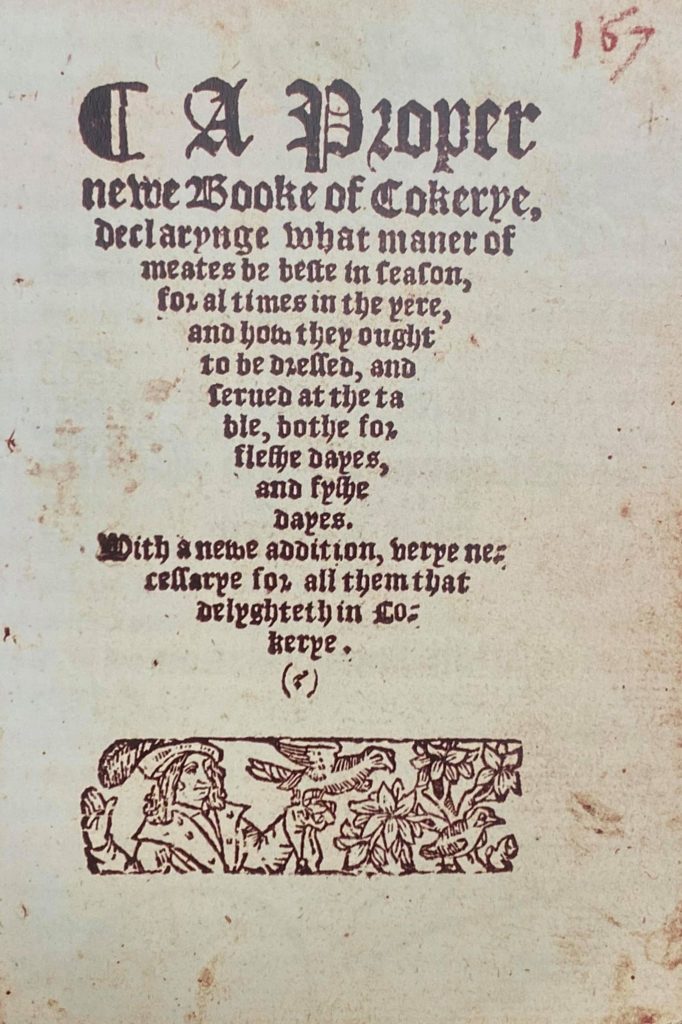 167
¶ A Proper
newe Booke of Cokerye,
declarynge what maner of
meates be beste in ſeaſon,
for al times in the yere,
and how they ought
to be dreſſed, and
ſerued at the ta
ble, bothe for
fleſhe dayes,
and fyſhe
dayes.
With a newe addition, verye ne⸗
ceſſarye for all them that
delyghteth in Co⸗
kerye.